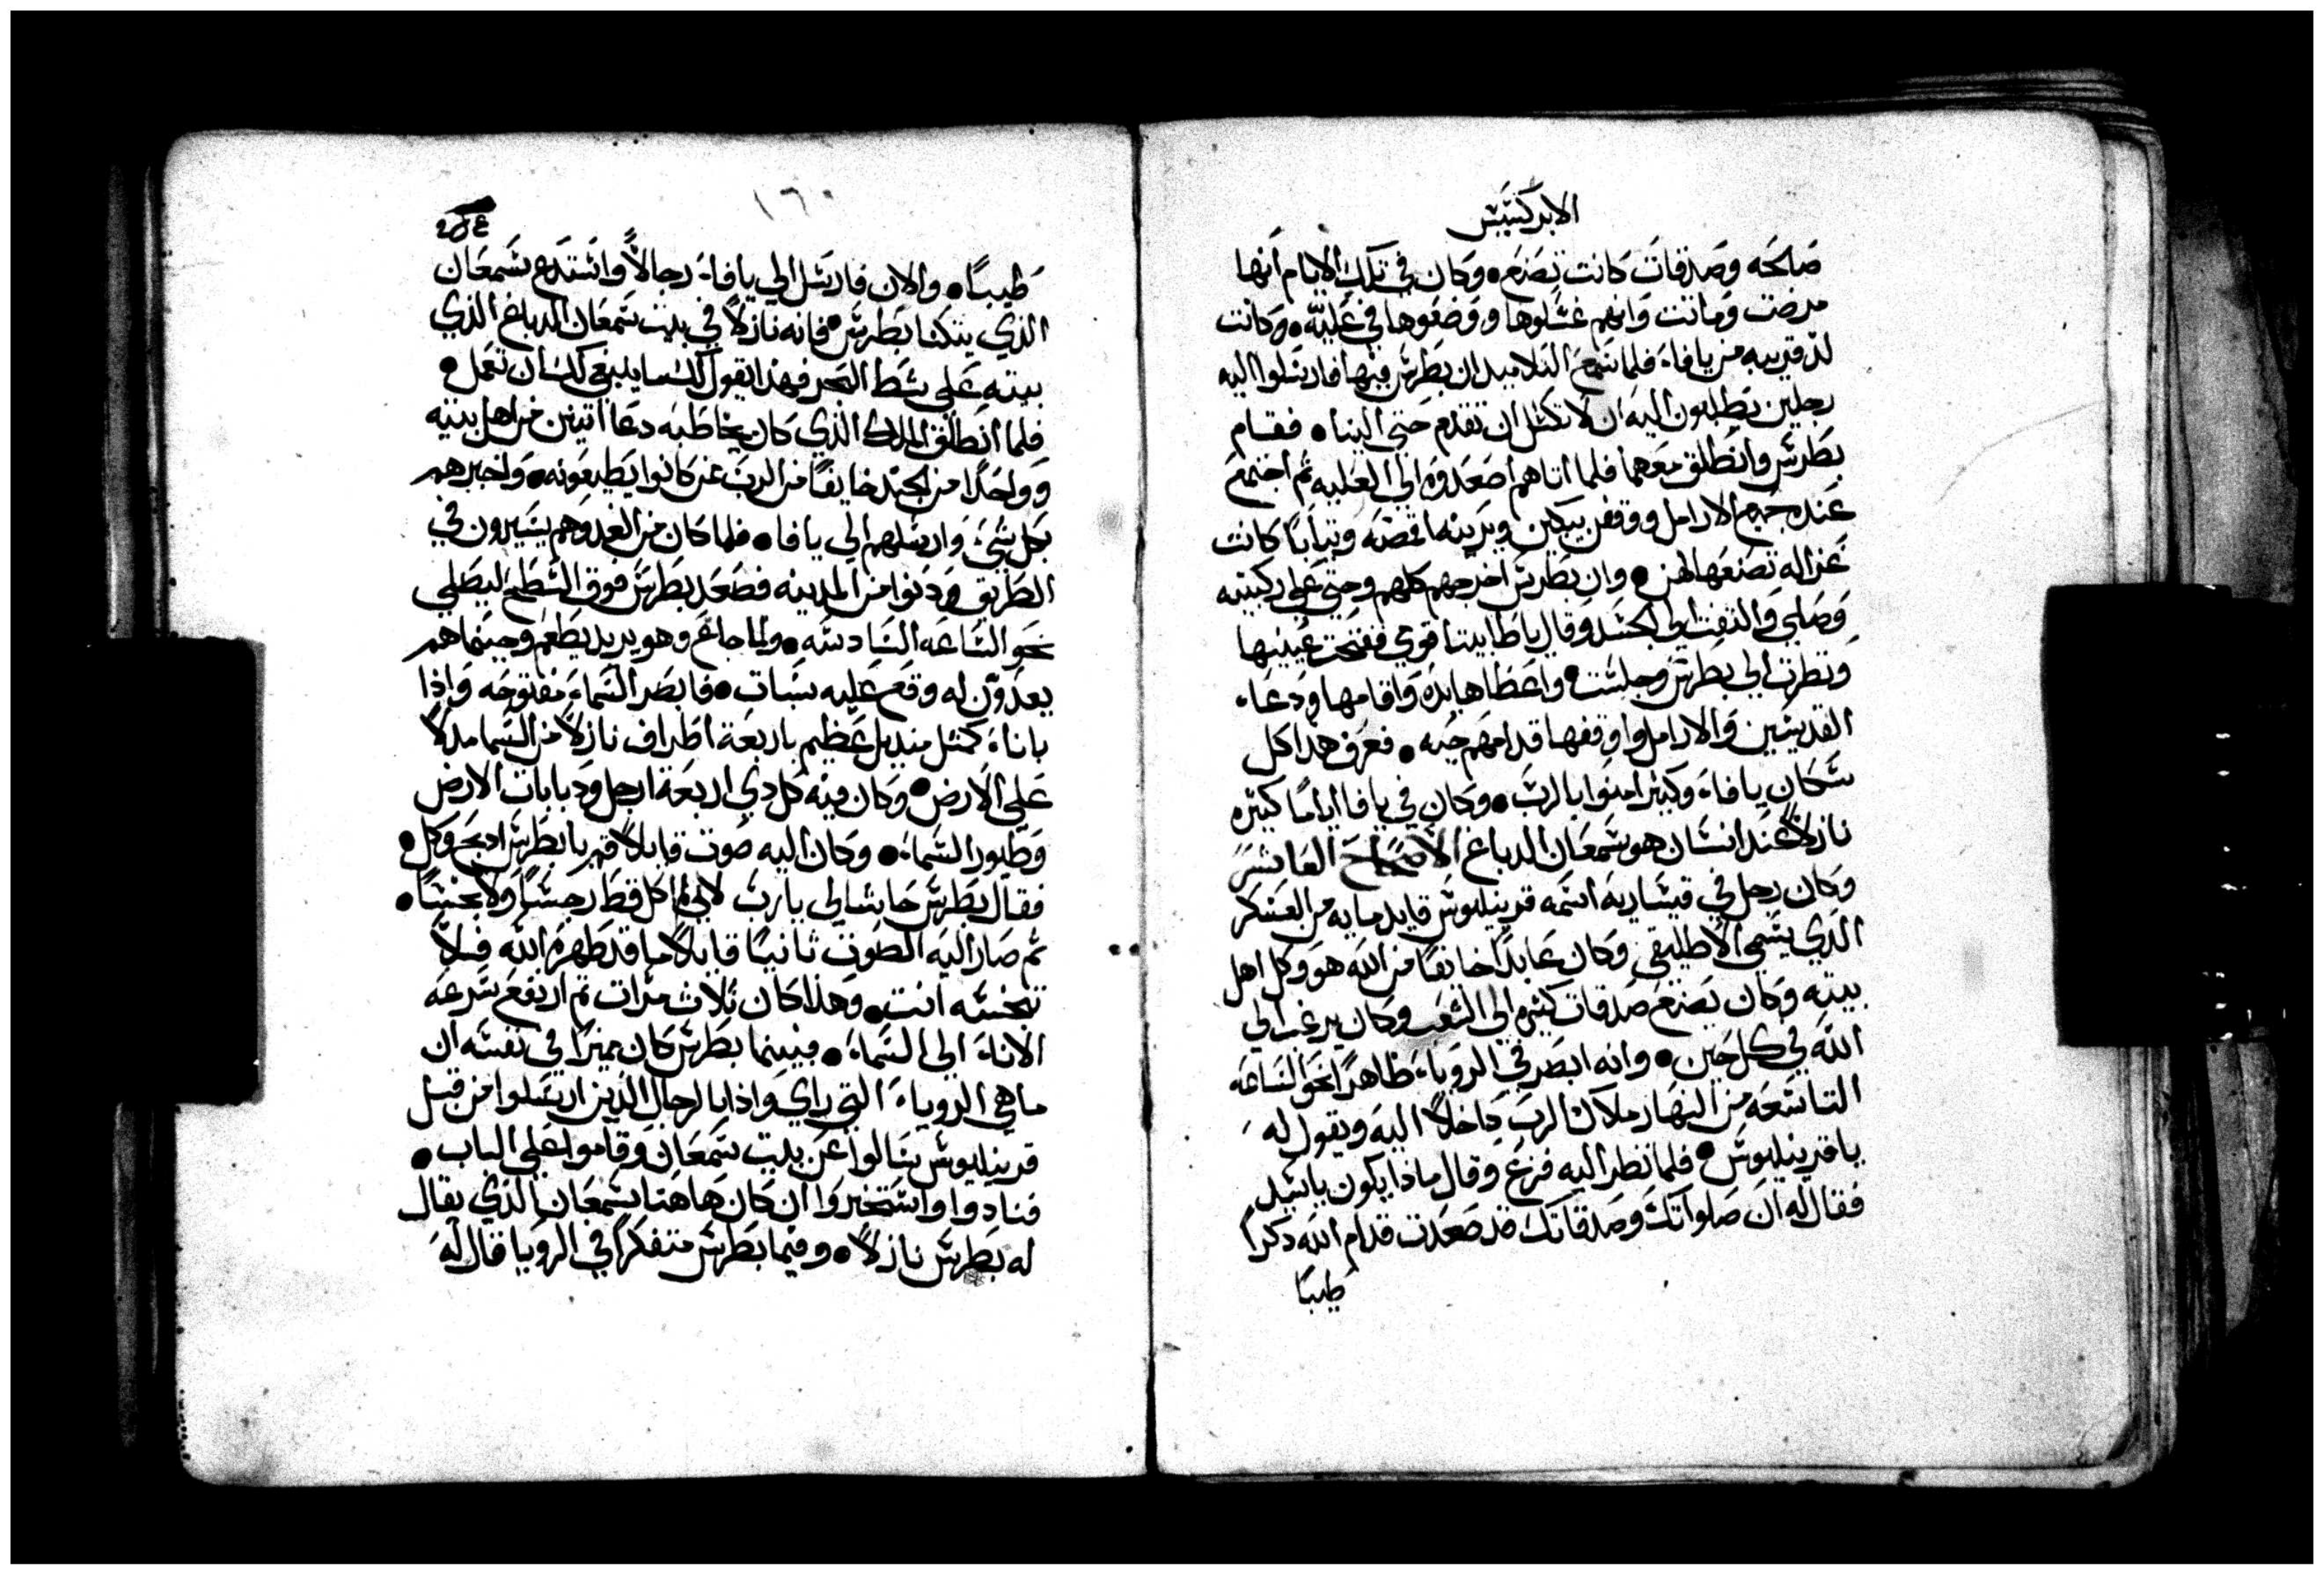 الابركسيس
صالحه وصدقات كانت تصنع • وكان في تلك الايام انها
مرضت وماتت وانهم غسلوها ووضعوها في عليه • وكانت
لد قريبه من يافاء فلما سمع التلاميد ان بطرس فيها فارسلوا اليه
رجلين يطلبون اليه ان لا تكسل ان تقدم حتى الينا • فقام
بطرس وانطلق معهما فلما اتاهم اصعدوه الي العليه ثم اجتمع
عنده جميع الارامل ووقفن يبكين ويرينه اقمصه وتيابًا كانت
غزاله تصنعها لهن • وان بطرس اخرجهم كلهم وجتي علي ركبتيه
وصلي والتفت الي الجسد وقال ياطابيتا قومي ففتحت عينيها
ونظرت الي بطرس وجلست • واعطاها يده واقامها ودعاء
القديسين والارامل واوقفها قدامهم حيه • فعرف هدا كل
سكان يافاء وكتيرا امنوا بالرب • وكان في يافا ايامًا كتيره
نازلاً عند انسان هو سمعان الدباغ الاصحاح العاشر
وكان رجل في قيساريه اسمه قرينليوس قايد مايه من العسكر
الدي يسمى الاطليقي وكان عابدًا خايفًا من الله هو وكل اهل
بيته وكان يصنع صدقات كتيره الي الشعب وكان يرغب الي
الله في كل حين • وانه ابصر في الروياء ظاهرًا نحو الساعه
التاسعه من النهار ملاك الرب داخلاً اليه ويقول له
ياقرينليوس • فلما نظر اليه فزع وقال مادا يكون ياسيد
فقال له ان صلواتك وصدقاتك قد صعدت قدام الله دكرًا
طيبًا
١٦٠
طيبًا • والان فارسل الي يافاء رجالاً واستدع سمعان
الدي يتكنا بطرس • فانه نازلاً في بيت سمعان الدباغ الدي
بيته علي شط البحر فهدا يقول لك ما ينبغي لك ان تعمل •
فلما انطلق الملاك الدي كان يخاطبه دعا اتنين من اهل بيته
وواحدًا من الجند خايفًا من الرب عن كانوا يطيعونه • واخبرهم
بكل شيء وارسلهم الي يافا • فلما كان من الغد وهم يسيرون في
الطريق ودنوا من المدينه فصعد بطرس فوق السطح ليصلي
نحو الساعه السادسه • ولما جاع وهو يريد يطعم وحينما هم
يعدون له وقع عليه سبات • فابصر السماء مفتوحه وادا
باناء كمتل منديل عظيم باربعة اطراف نازلاً من السما مدلاً
علي الارض • وكان فيه كل دي اربعة ارجل ودبابات الارض
وطيور السماء • وكان اليه صوت قايلاً قم يابطرس ادبح وكل •
فقال بطرس حاشا لي يارب لاني لم اكل قط رجسًا ولا نجسًا •
تم صار اليه الصوت تانيًا قايلاً ما قد طهره الله فلا
تنجسه انت • وهدا كان تلات مرات تم ارتفع سرعه
الاناء الي السماء • فبينما بطرس كان مميزًا في نفسه ان
ما هي الروياء التي راي وادا بالرجال الدين ارسلوا من قبل
قرينليوس سالوا عن بيت سمعان وقاموا علي الباب •
فنادوا واستخبروا ان كان هاهنا سمعان الدي يقال
له بطرس نازلاً • وفيما بطرس متفكرًا في الرويا قال له